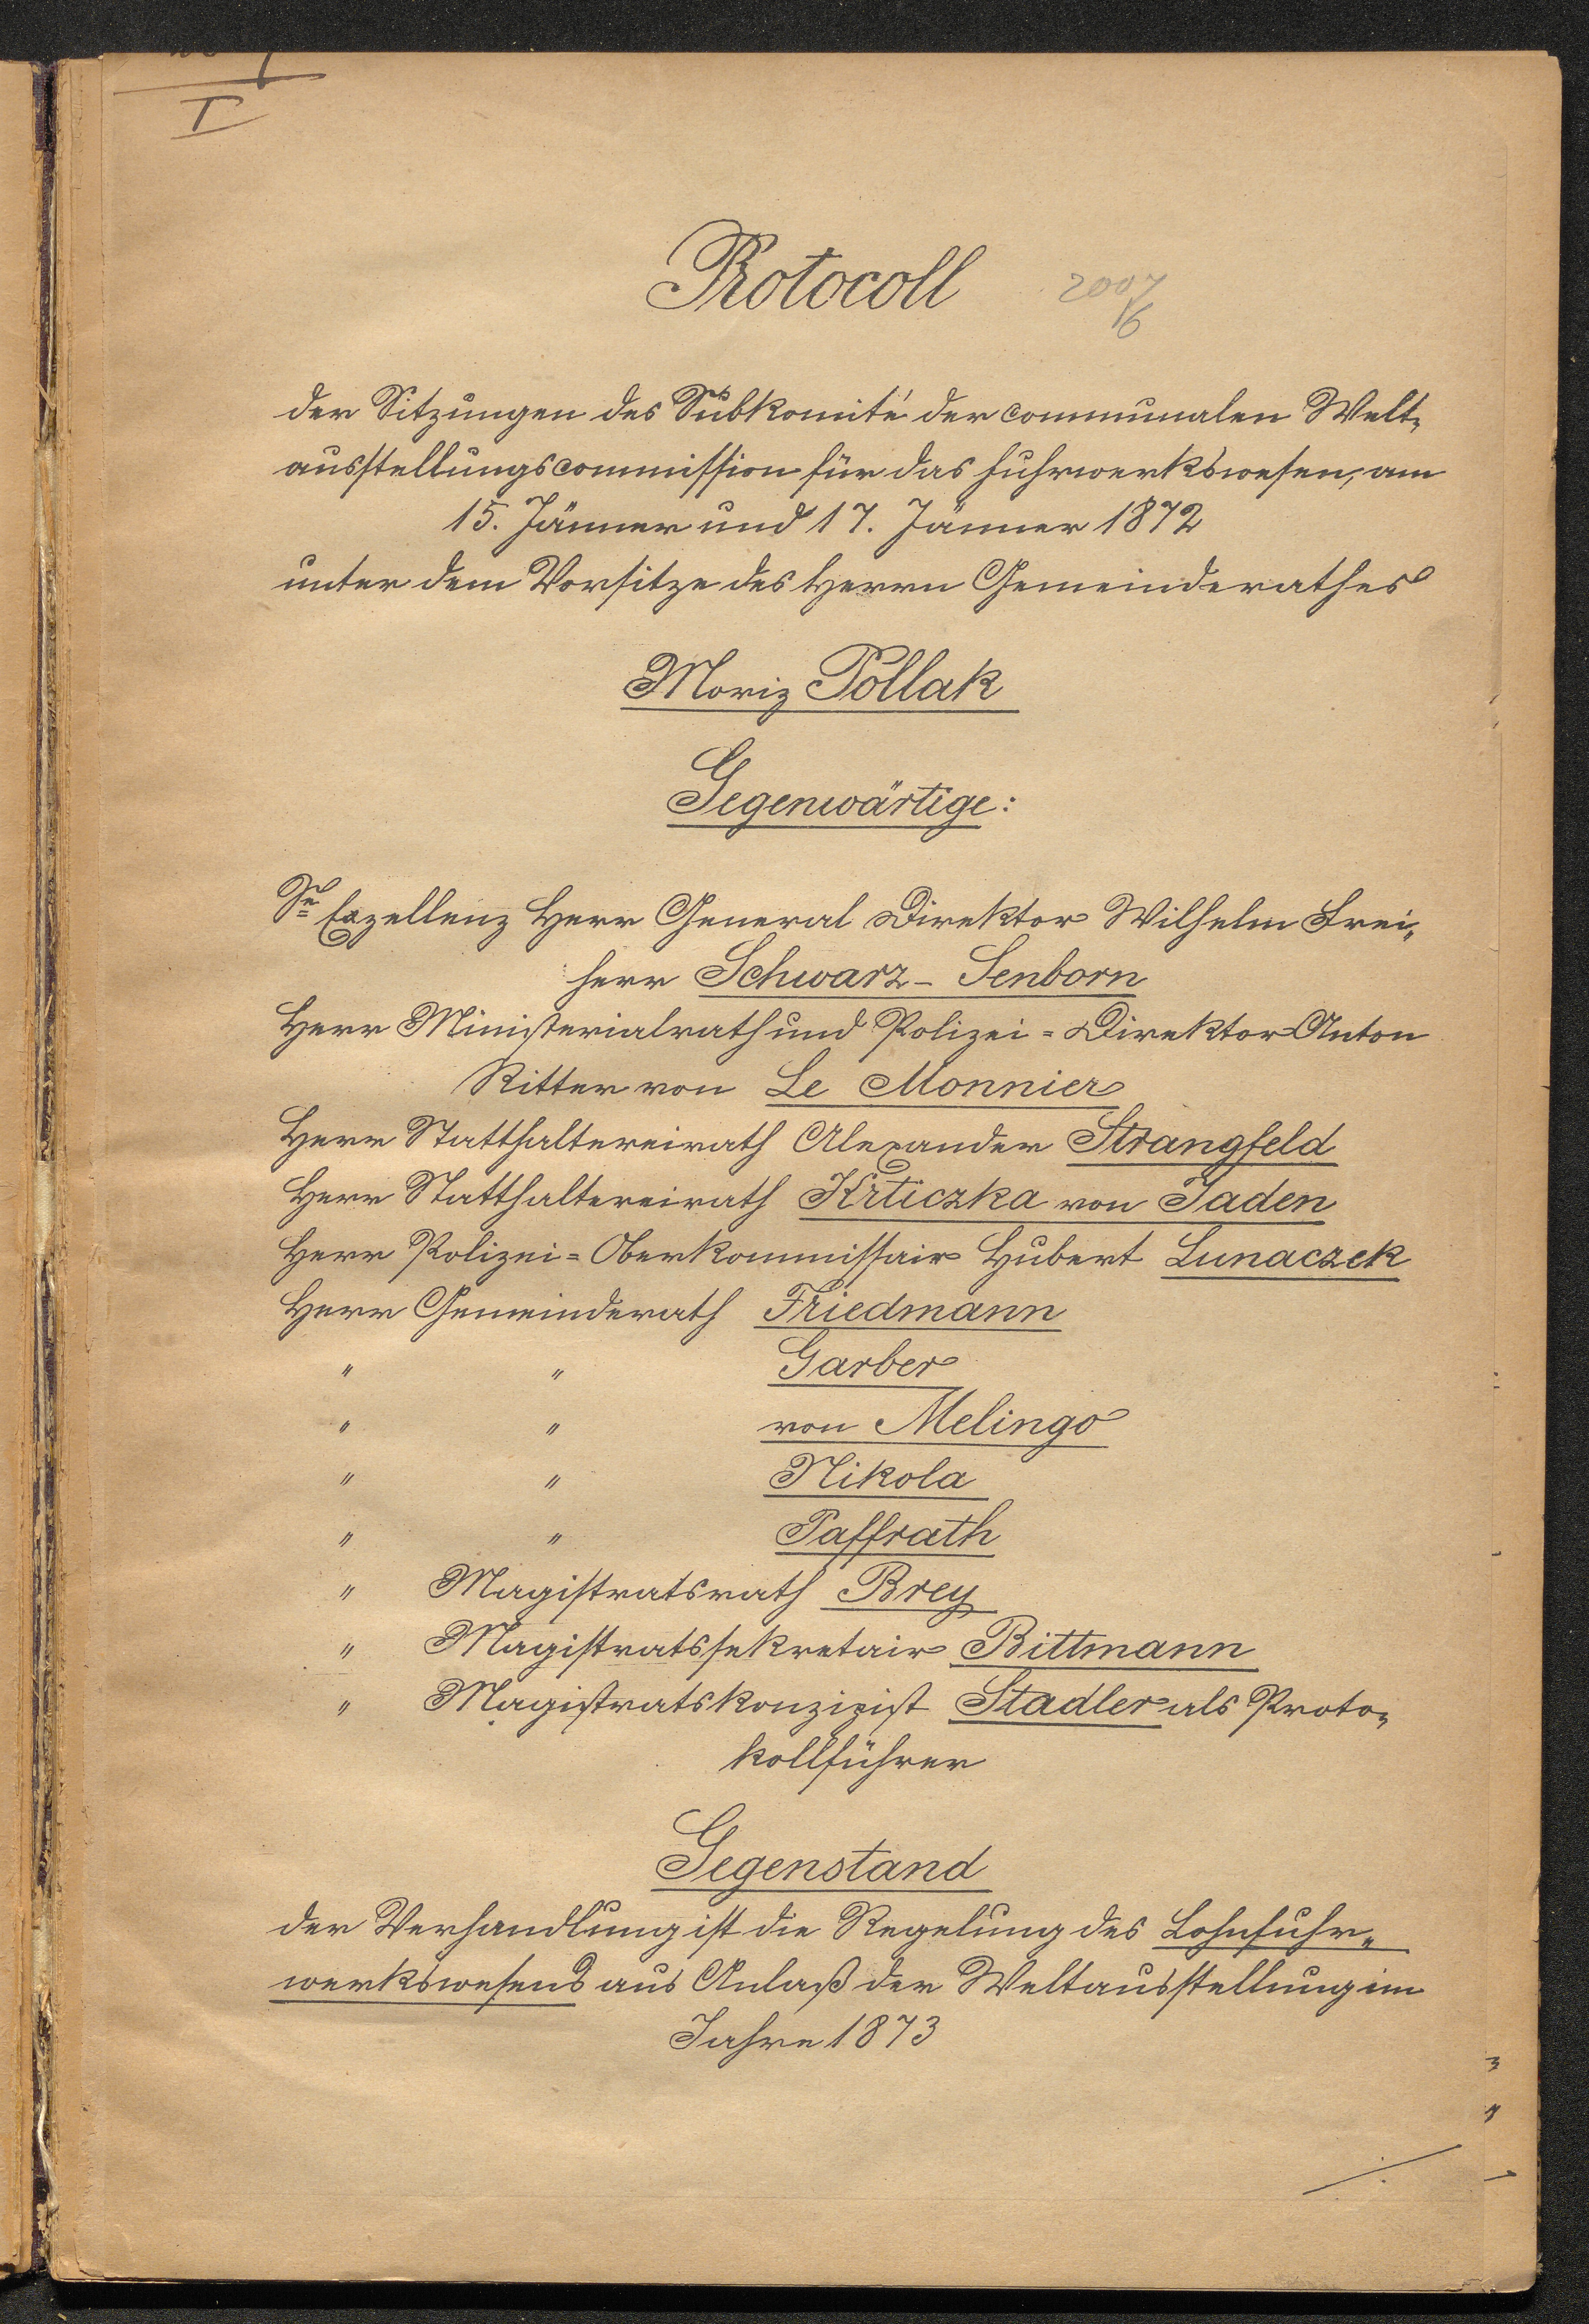 I
Protocoll
2007
16
der Sitzungen des Subkomité der communalen Welt=
ausstellungscommission für das Fuhrwerkswesen, am
15. Jänner und 17. Jänner 1872
unter dem Vorsitze des Herrn Gemeinderathes
Moriz Pollak
Gegenwärtige:
Se Exzellenz Herr General Direktor Wilhelm Frei=
herr Schwarz-Senborn
Herr Ministerialrath und Polizei=Direktor Anton
Ritter von Le Monnier
Herr Statthaltereirath Alexander Strangfeld
Herr Statthaltereirath Krticzka von Jaden
Herr Polizei=Oberkommissair Hubert Lunaczek
Herr Gemeinderath Friedmann
" " Garber
" " von Melingo
" " Nikola
" " Paffrath
" Magistratsrath Brey
" Magistratssekretair Bittmann
" Magistratskonzipist Stadler als Proto=
kollführer
Gegenstand
der Verhandlung ist die Regelung des Lohnfuhr=
werkswesens aus Anlaß der Weltausstellung im
Jahre 1873